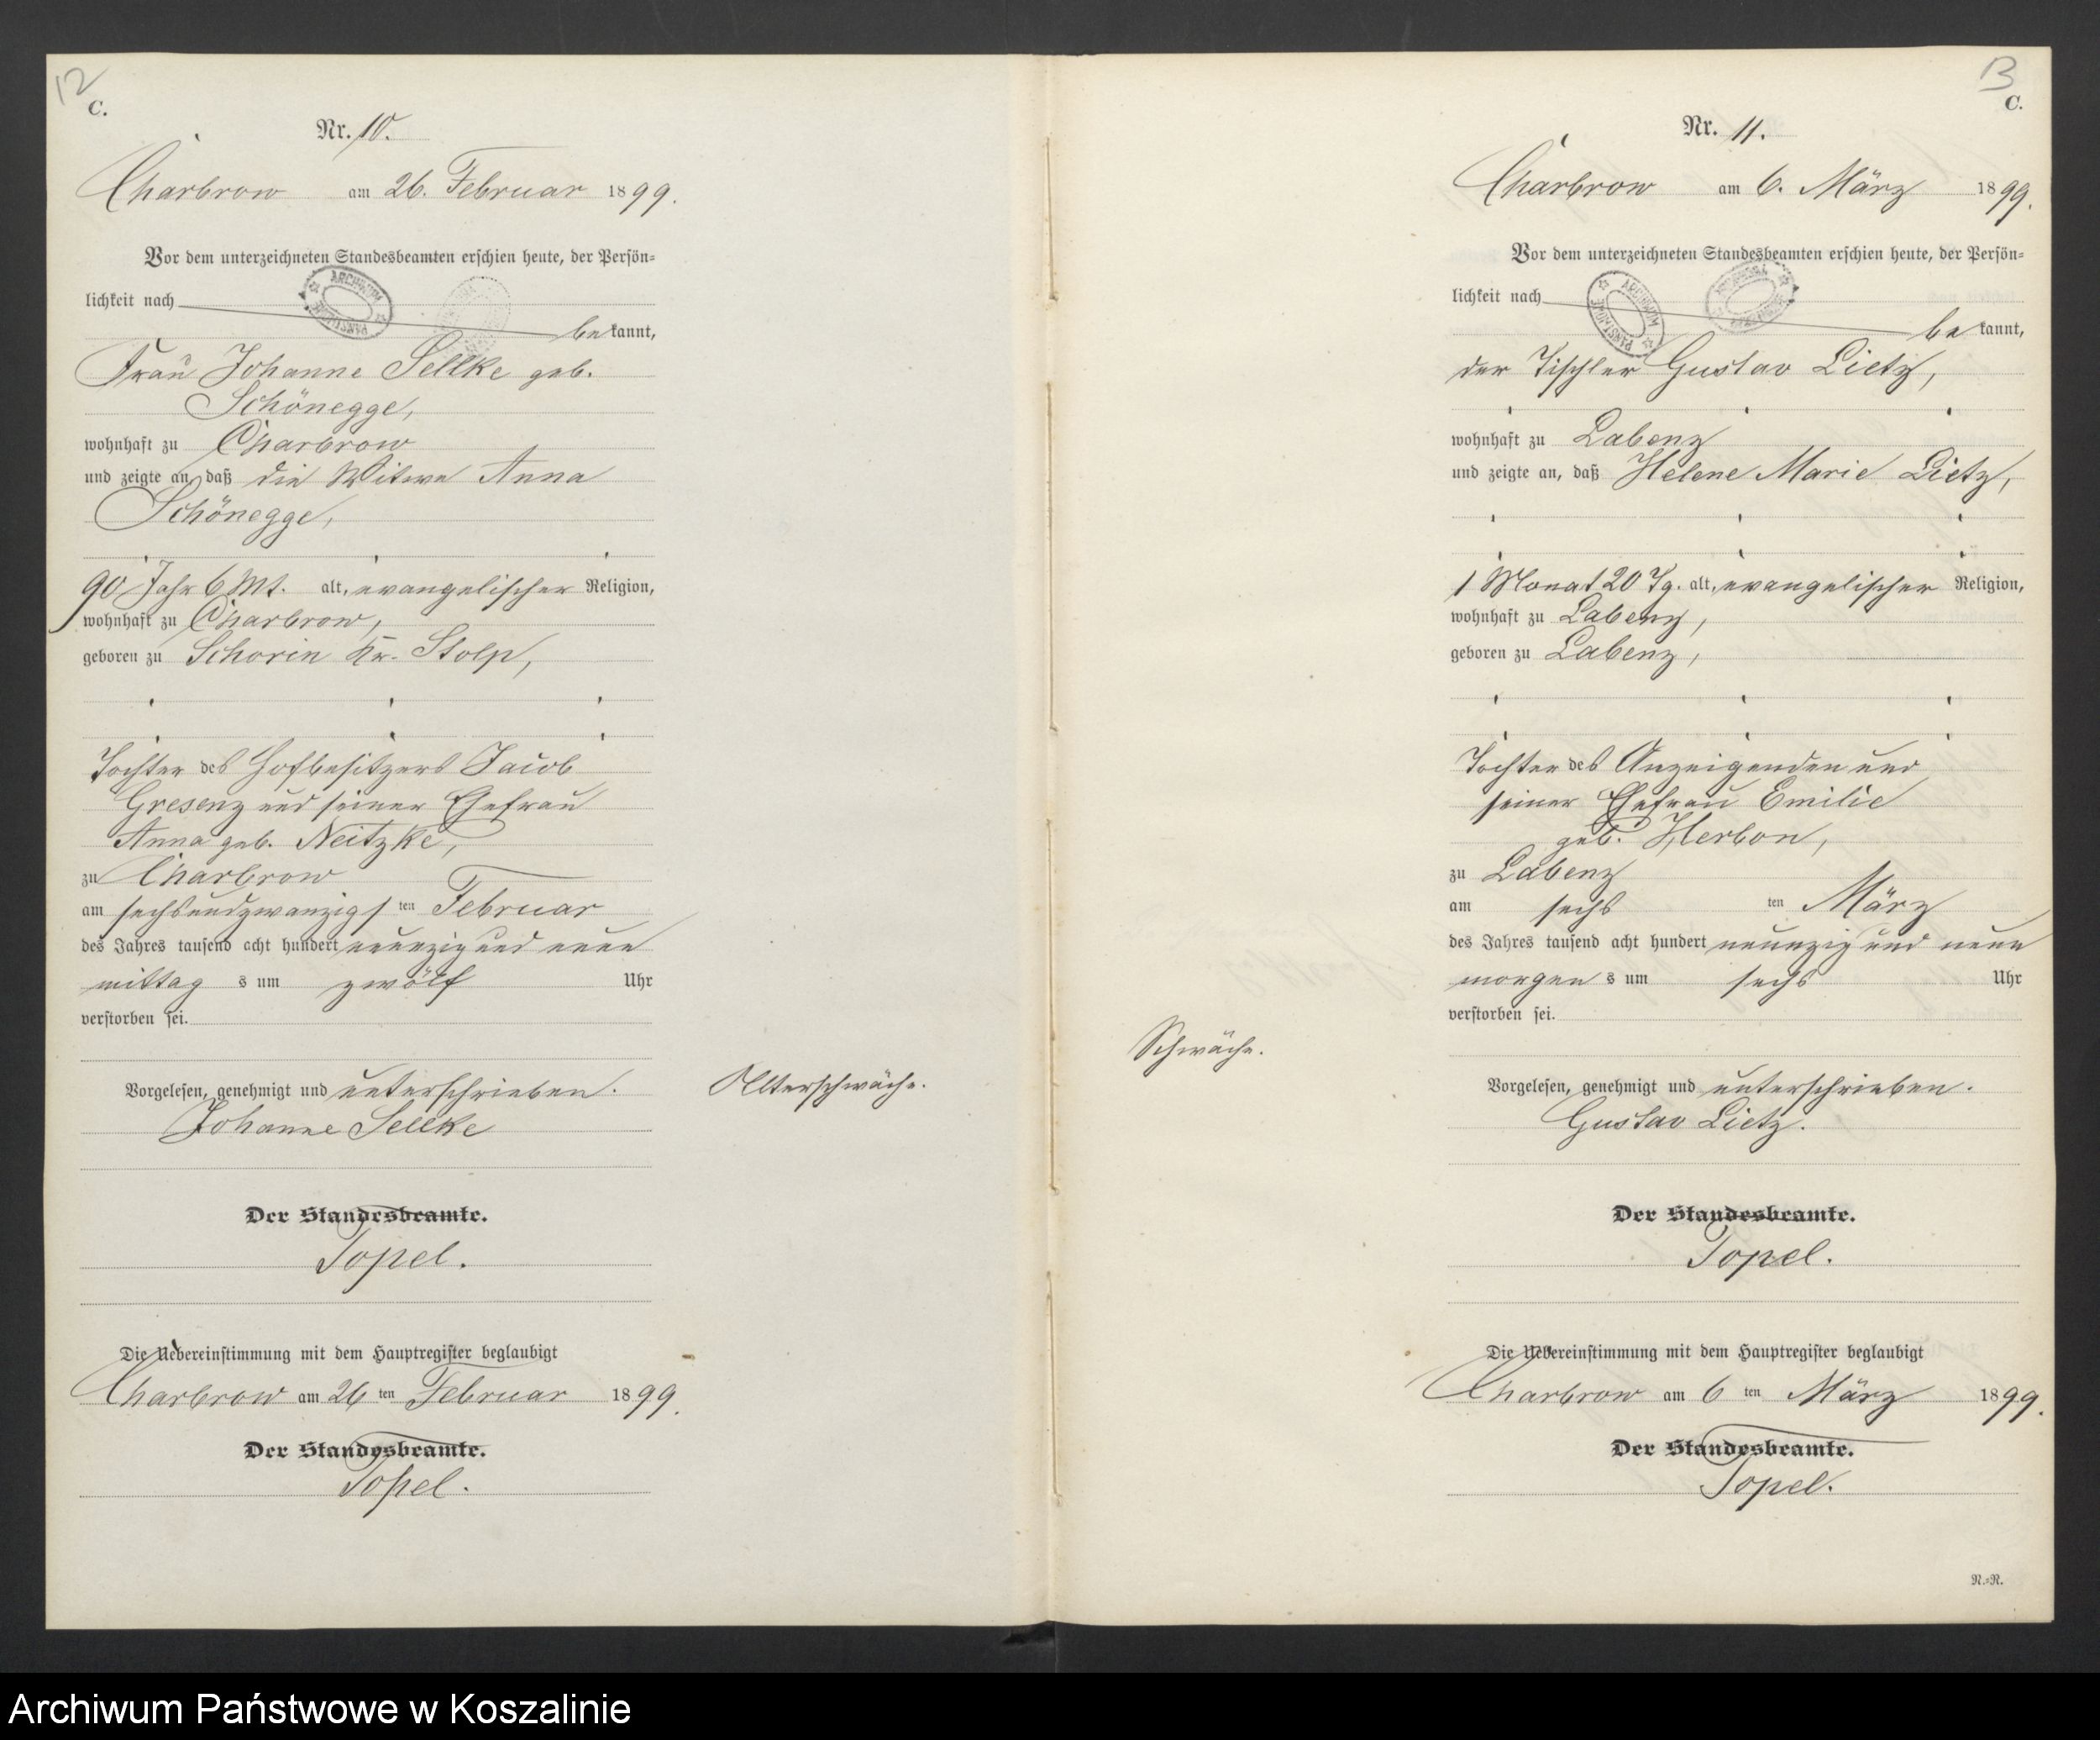 12
C.
Nr. 10.
Charbrow am 26. Februar 1899.
Vor dem unterzeichneten Standesbeamten erschien heute, der Persön-
lichkeit nach
be kannt,
Frau Johanne Sellke geb.
Schönegge,
wohnhaft zu Charbrow
und zeigte an, daß die Witwe Anna
Schönegge,
90 Jahr 6 Mt. alt, evangelischer Religion,
wohnhaft zu Charbrow,
geboren zu Schorin Kr. Stolp,
Tochter des Hofbesitzers Jacob
Gresenz und seiner Ehefrau
Anna geb. Neitzke,
zu Charbrow
am sechsundzwanzigsten Februar
des Jahres tausend acht hundert neunzig und neun
mittags um zwölf Uhr
verstorben sei.
Vorgelesen, genehmigt und unterschrieben.
Johanne Sellke
Alterschwäche.
Der Standesbeamte.
Topel.
Die Uebereinstimmung mit dem Hauptregister beglaubigt
Charbrow am 26 ten Februar 1899.
Der Standesbeamte.
Topel.
13
C.
Nr. 11.
Charbrow am 6. März 1899.
Vor dem unterzeichneten Standesbeamten erschien heute, der Persön-
lichkeit nach
be kannt,
der Tischler Gustav Lietz,
wohnhaft zu Labenz
und zeigte an, daß Helene Marie Lietz,
1 Monat 20 Tg. alt, evangelischer Religion,
wohnhaft zu Labenz,
geboren zu Labenz,
Tochter des Anzeigenden und
seiner Ehefrau Emilie
geb. Herbon,
zu Labenz
am sechs ten März
des Jahres tausend acht hundert neunzig und neun
morgens um sechs Uhr
verstorben sei.
Schwäche.
Vorgelesen, genehmigt und unterschrieben.
Gustav Lietz.
Der Standesbeamte.
Topel.
Die Uebereinstimmung mit dem Hauptregister beglaubigt
Charbrow am 6 ten März 1899.
Der Standesbeamte.
Topel.
N.=N.
Archiwum Państwowe w Koszalinie